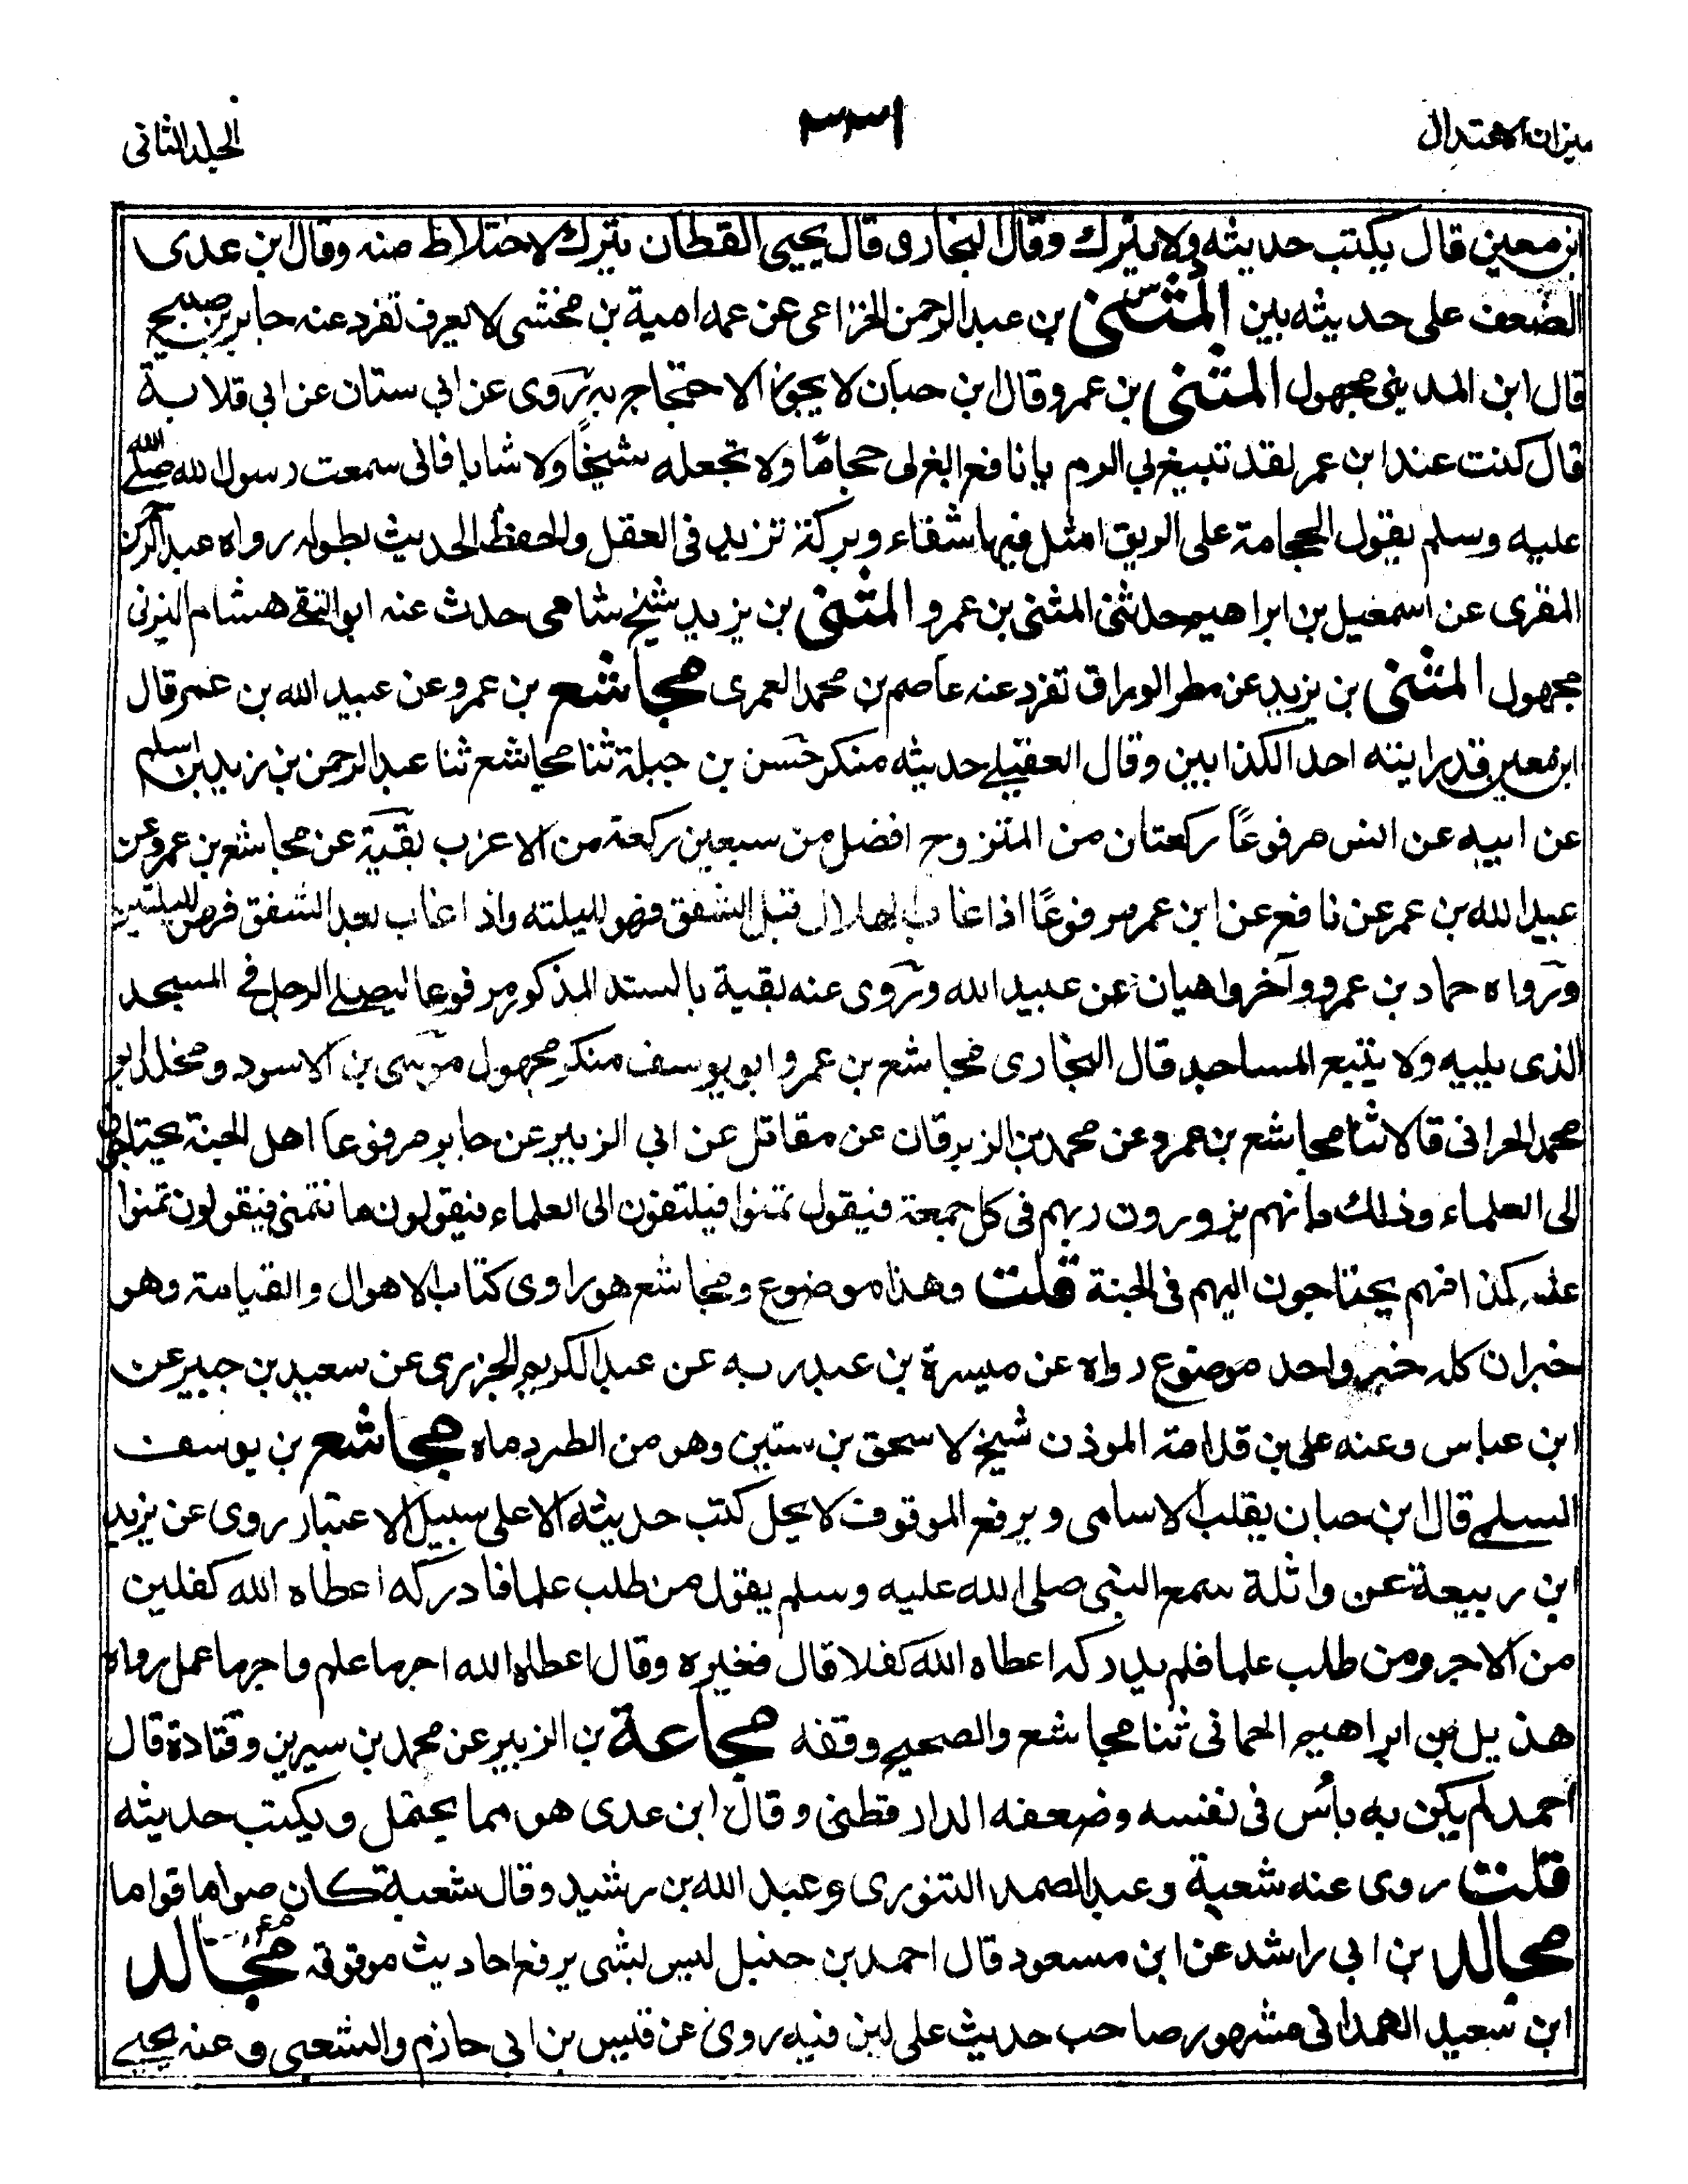 ميزان الاعتدال
٣٣١
الجلد الثانى
ابن معين قال يكتب حديثه ولا يترك وقال البخارى قال يحيى القطان يترك لاختلاط منه وقال ابن عدى
الضعف على حديثه بين المثنى بن عبد الرحمن الخزاعى عن عمه امية بن مخشى لا يعرف تفرد عنه جابر بن صبيح
قال ابن المدينى مجهول المثنى بن عمرو قال ابن حبان لا يجوز الاحتجاج به روى عن ابي سنان عن ابي قلابة
قال كنت عند ابن عمر لقد تبيغ بي الدم يا نافع ابغ لى حجاما ولا تجعله شيخا ولا شابا فانى سمعت رسول الله صلى الله
عليه وسلم يقول الحجامة على الريق امثل فيها شفاء وبركة تزيد فى العقل والحفظ الحديث بطوله رواه عبد الرحمن
المقرى عن اسمعيل بن ابراهيم حدثنى المثنى بن عمرو المثنى بن يزيد شيخ شامى حدث عنه ابو التقى هشام اليزنى
مجهول المثنى بن يزيد عن مطر الوراق تفرد عنه عاصم بن محمد العمرى مجاشع بن عمرو عن عبيد الله بن عمر قال
ابن معين قد رايته احد الكذابين وقال العقيلى حديثه منكر حسن بن جبلة ثنا مجاشع ثنا عبد الرحمن بن زيد بن اسلم
عن ابيه عن انس مرفوعًا ركعتان من المتزوج افضل من سبعين ركعة من الاعزب بقية عن مجاشع بن عمرو عن
عبيد الله بن عمر عن نافع عن ابن عمر مرفوعًا اذا غاب الهلال قبل الشفق فهو لليلته واذا غاب بعد الشفق فهو لليلتين
ورواه حماد بن عمرو وآخر واهيان عن عبيد الله وروى عنه بقية بالسند المذكور مرفوعا ليصلى الرجل فى المسجد
الذى يليه ولا يتبع المساجد قال البخارى مجاشع بن عمرو ابو يوسف منكر مجهول موسى بن الاسود ومخلد ابو
محمد الحرانى قالا ثنا مجاشع بن عمرو عن محمد بن الزبرقان عن مقاتل عن ابي الزبير عن جابر مرفوعا اهل الجنة يحتاجون
الى العلماء وذلك بانهم يزورون ربهم فى كل جمعة فيقول تمنوا فيلتفون الى العلماء فيقولون ما نتمنى فيقولون تمنوا
عليه كذا فهم يحتاجون اليهم فى الجنة قلت وهذا موضوع ومجاشع هو راوى كتاب الاهوال والقيامة وهو
خبران كله خبر واحد موضوع رواه عن ميسرة بن عبد ربه عن عبد الكريم الجزرى عن سعيد بن جبير عن
ابن عباس وعنه على بن قدامة الموذن شيخ لاسحق بن ستين وهو من الطرد ماه مجاشع بن يوسف
السلمى قال ابن حبان يقلب الاسامى ويرفع الموقوف لا يحل كتب حديثه الا على سبيل الاعتبار روى عن يزيد
ابن ربيعة عن واثلة سمع النبى صلى الله عليه وسلم يقول من طلب علما فادركه اعطاه الله كفلين
من الاجر ومن طلب علما فلم يدركه اعطاه الله كفلا قال فغيره وقال اعطاه الله اجر ما علم واجر ما عمل رواه
هذيل بن ابراهيم الحمانى ثنا مجاشع والصحيح وقفه مجاعة بن الزبير عن محمد بن سيرين وقتادة قال
احمد لم يكن به بأس فى نفسه وضعفه الدارقطنى وقال ابن عدى هو مما يحتمل ويكتب حديثه
قلت روى عنه شعبة وعبد الصمد التنورى وعبد الله بن رشيد وقال شعبة كان صواما قواما
مجالد بن ابي راشد عن ابن مسعود قال احمد بن حنبل ليس بشى يرفع احاديث موقوفه مجالد
ابن سعيد الهمدانى مشهور صاحب حديث على لين فيه روى عن قيس بن ابي حازم والشعبى وعنه يحيى